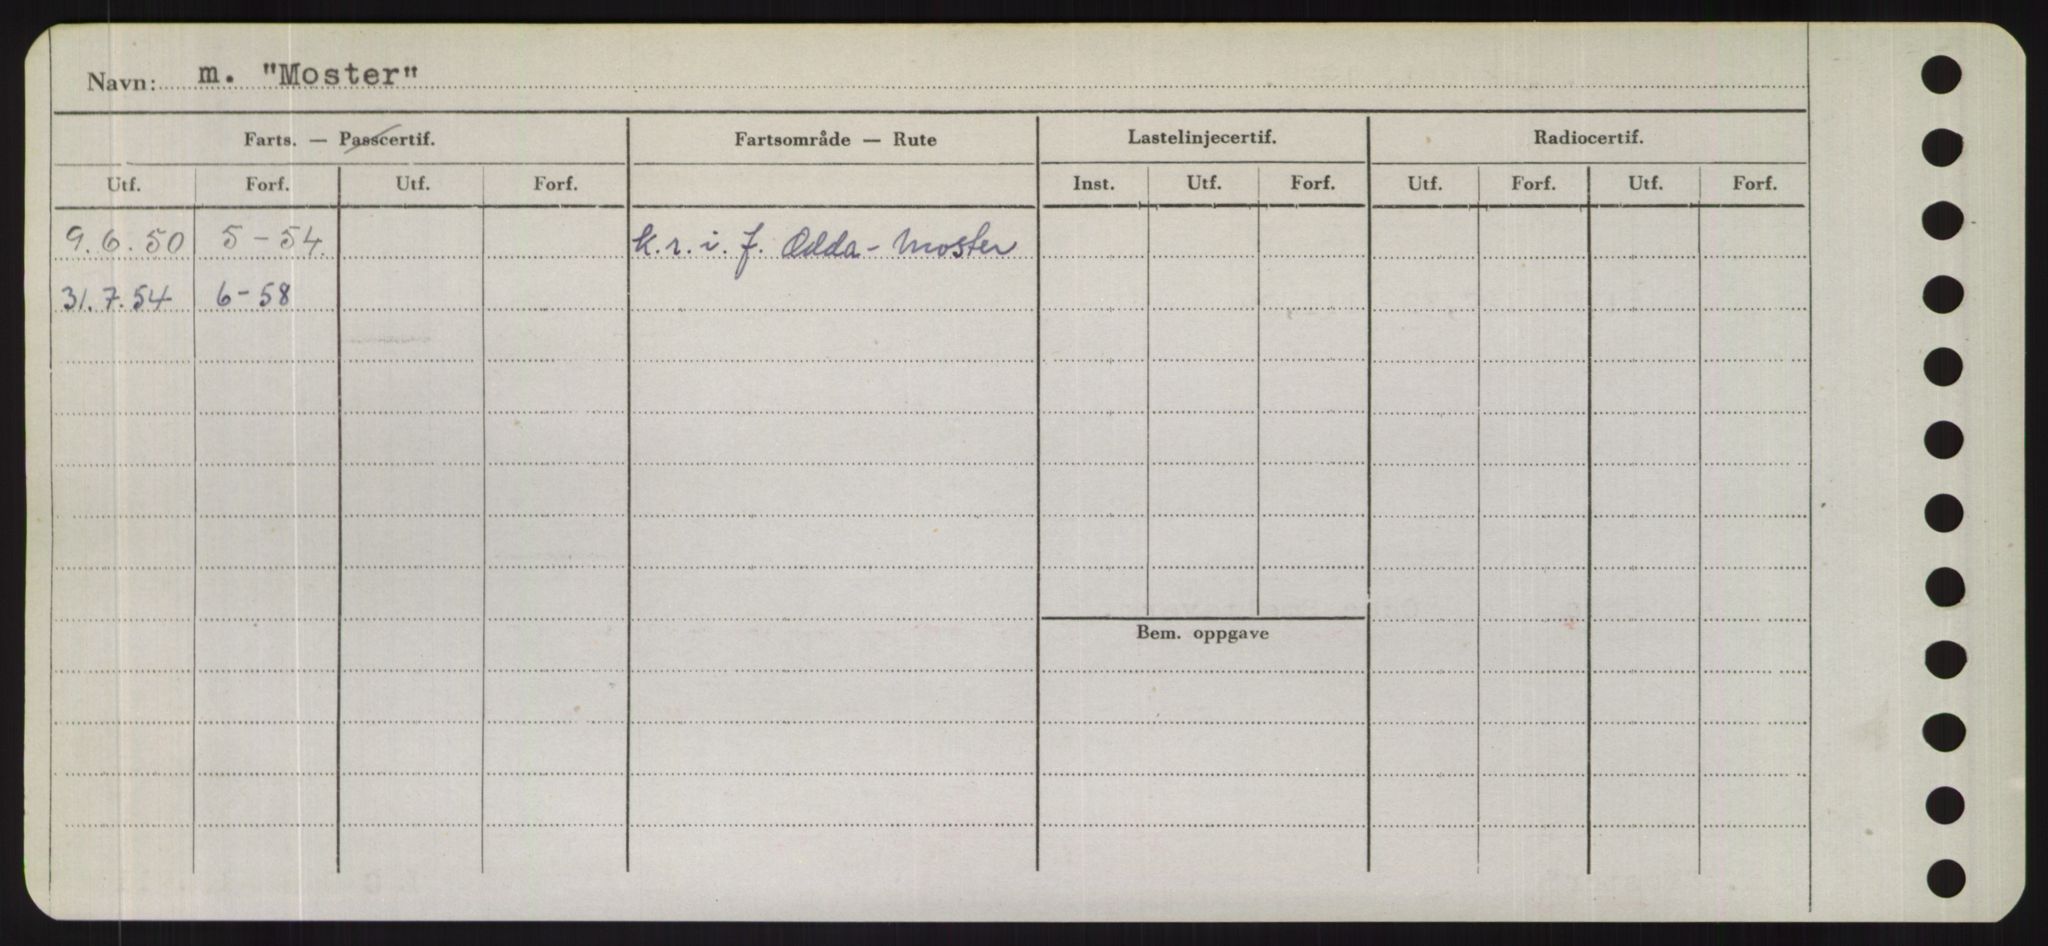 Navn: m. "Moster"
Farts. — Passcertif. Fartsområde — Rute Lastelinjecertif. Radiocertif.
Utf. Forf. Utf. Forf. Inst. Utf. Forf. Utf. Forf. Utf. Forf.
9.6.50 5-54. k.r.i.f. Odda - Moster
31.7.54 6-58
Bem. oppgave